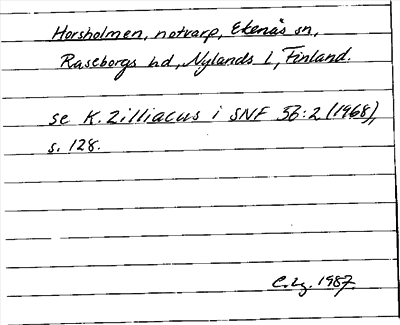 Horsholmen, notvarp, Ekenäs sn,
Raseborgs hd, Nylands l, Finland.
se K. Zilliacus i SNF 56:2 (1968),
s. 128.
C.Lg. 1987.